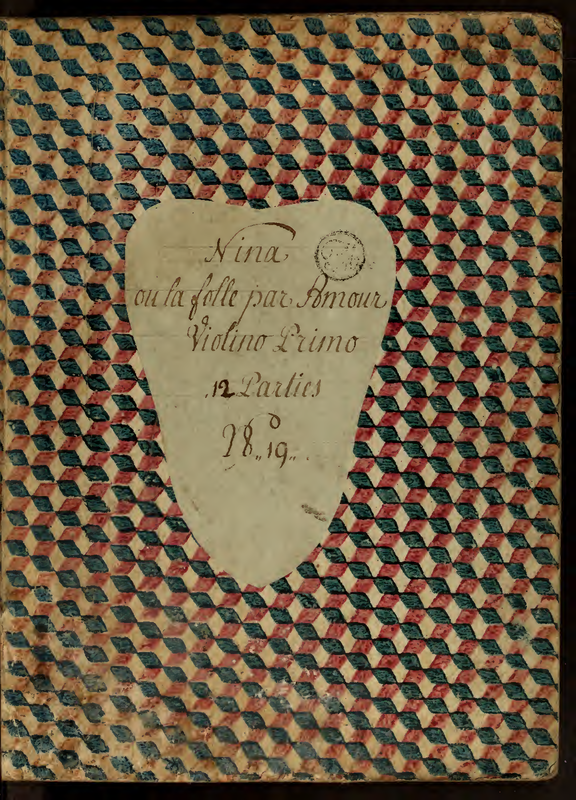 Nina
ou la folle par Amour
Violino Primo
.12 Parties
N°. 19..